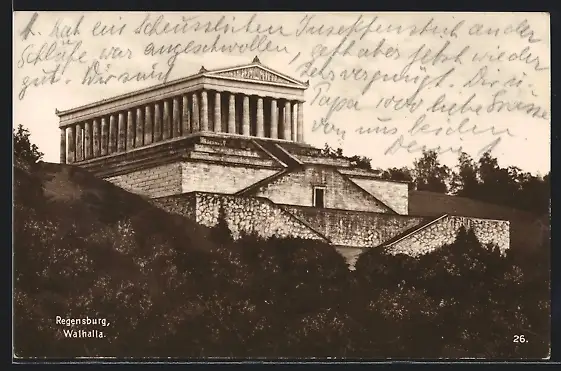 hat ein scheussliches Insektenstich an der
Schläfe, war angeschwollen, geht aber jetzt wieder
gut.
sehr vergnügt. Dir u.
Papa viele liebe Grüsse
von uns beiden
Regensburg,
Walhalla.
26.